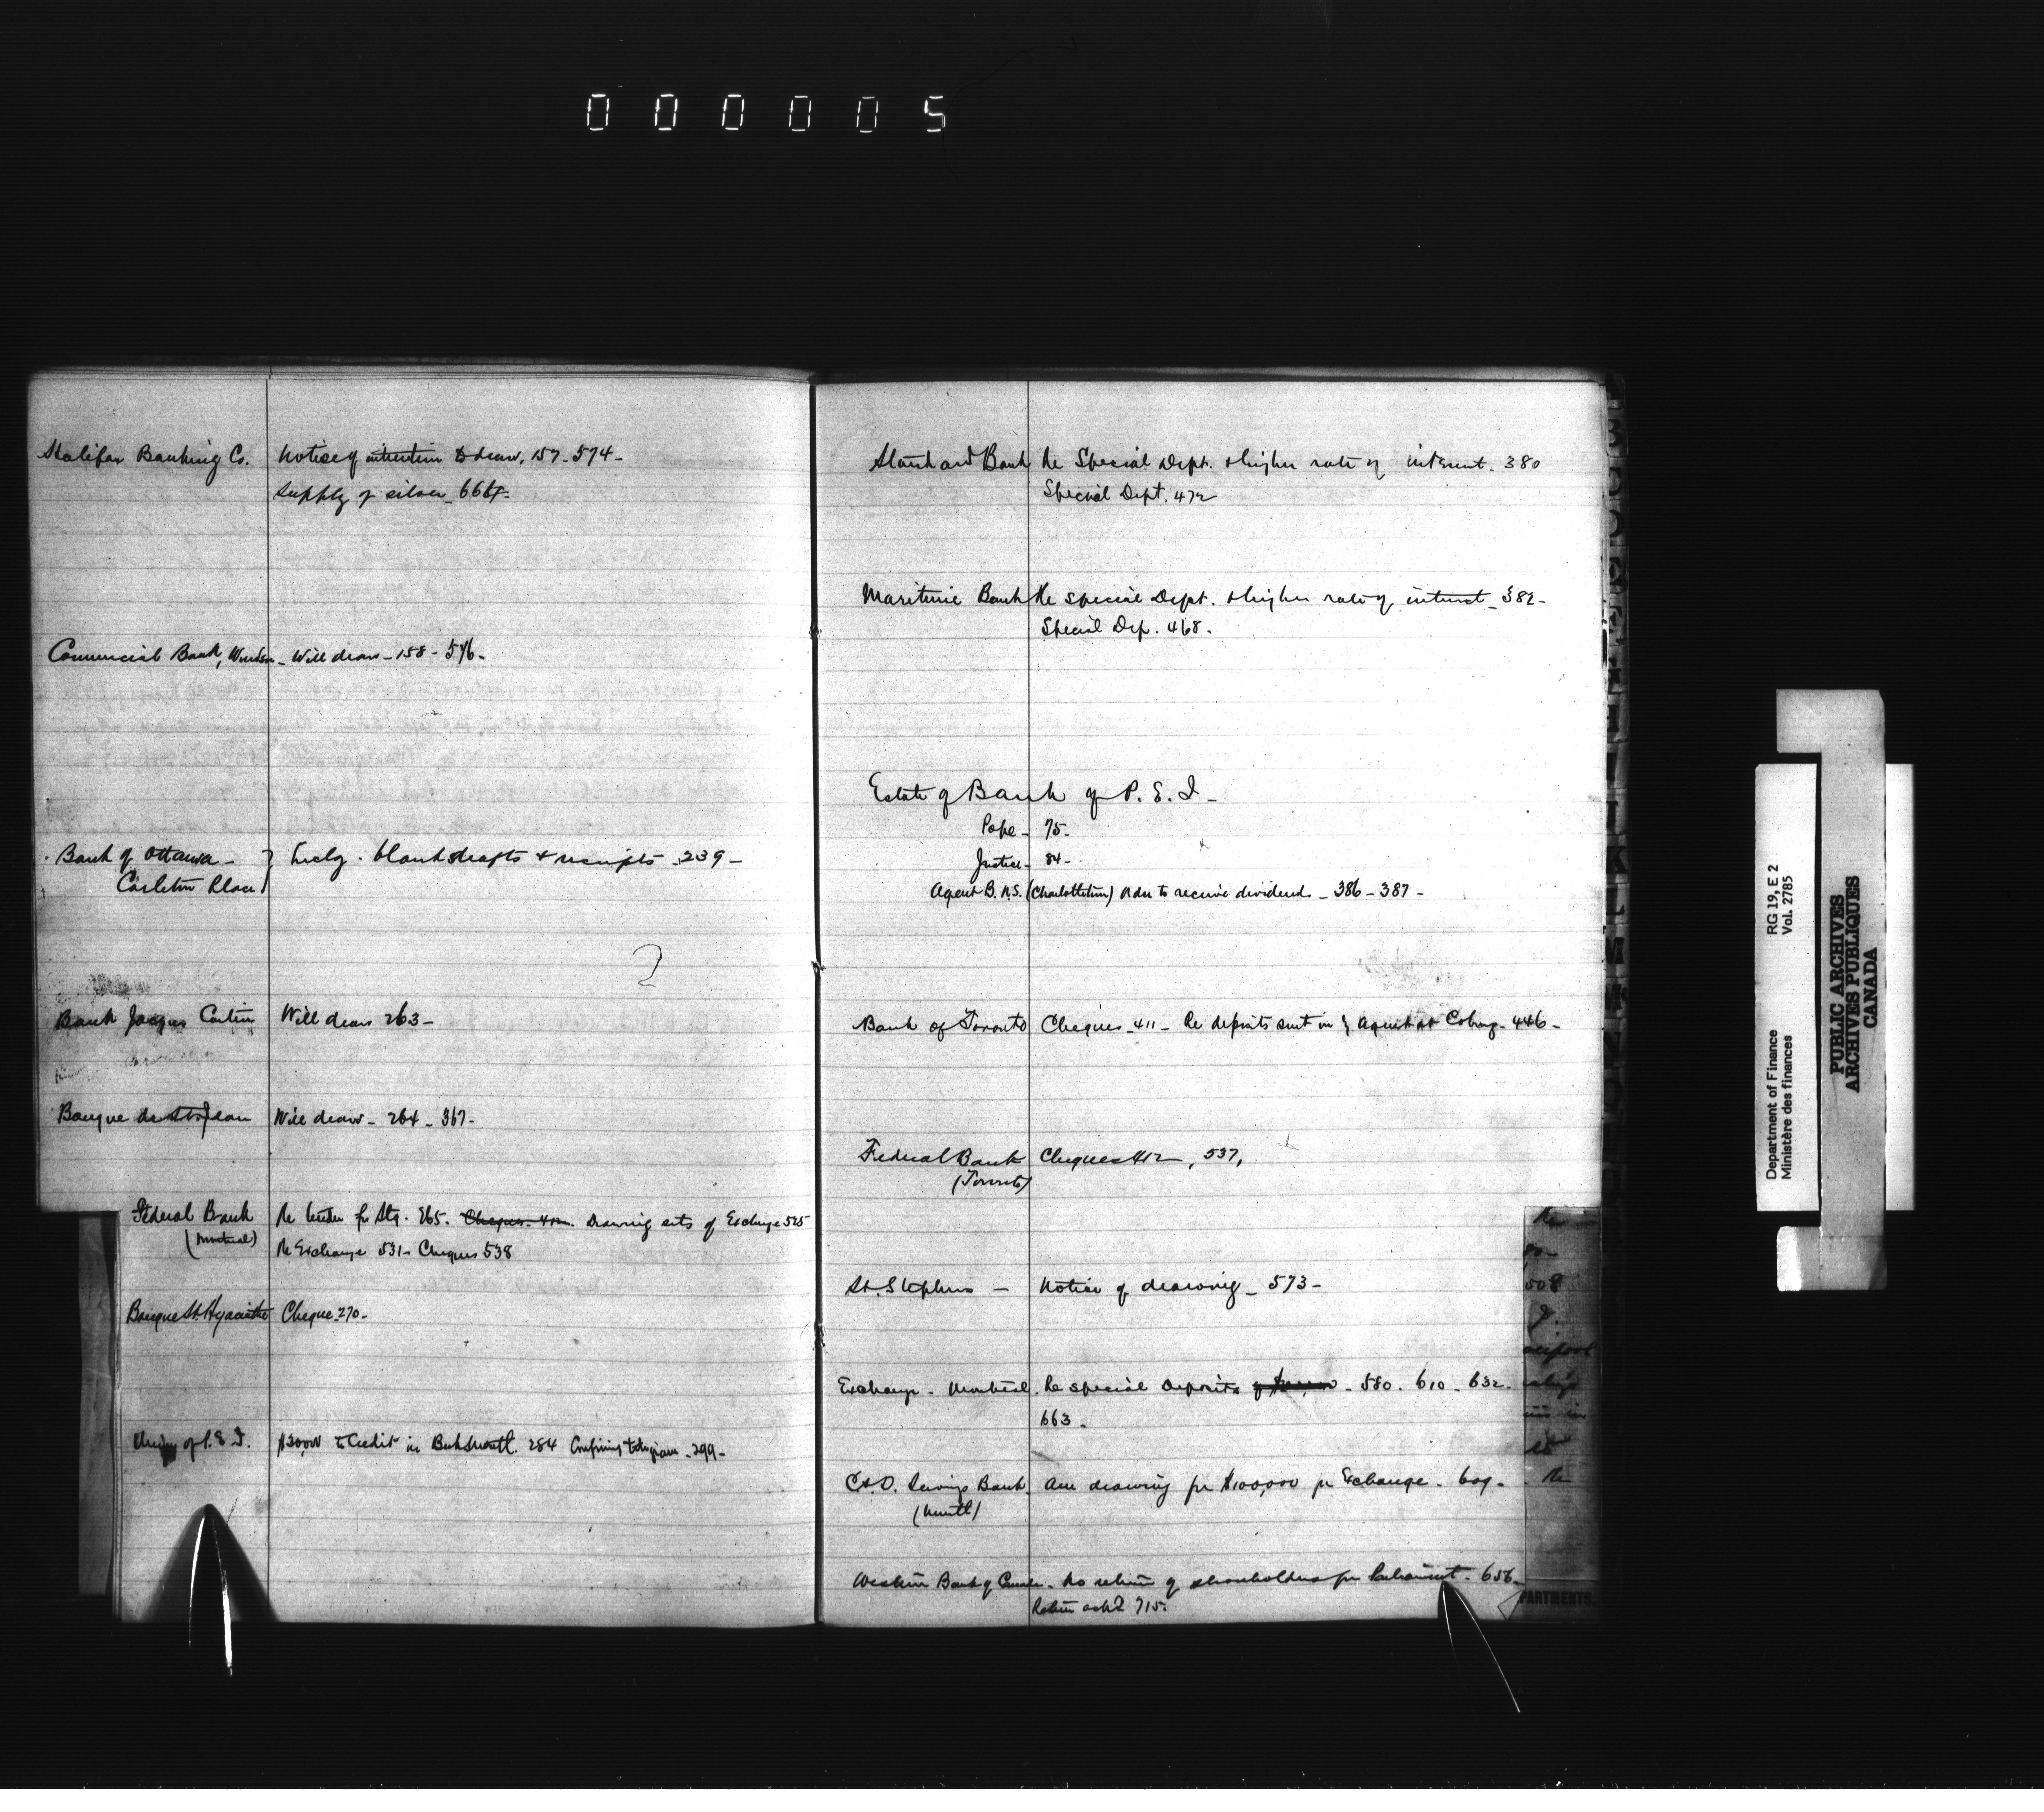 000005
Halifax Banking Co. Notice of intention to draw. 157 - 574 -
Supply of silver - 664 -
Commercial Bank, Windsor - Will draw - 158 - 576 -
Bank of Ottawa - } Enclg. blank drafts & receipts - 239 -
Carleton Place }
2
Bank Jacques Cartier Will draw 263 -
Banque de St. Jean Will draw - 264 - 367 -
Federal Bank Re tender for Stg. 265. Cheques. 412. Drawing sets of Exchange 525
(Montreal) Re Exchange 531 - Cheques 538
Banque St. Hyacinthe Cheque - 270 -
Union of P.E.I. to Credit in Bk of Montl. 284 Confirming telegram - 299 -
Standard Bank Re Special Dept. & higher rate of interest - 380
Special Dept. 472
Maritime Bank Re special Dept. & higher rate of interest - 382 -
Special Dep. 468.
Estate of Bank of P. E. I -
Pope - 75 -
Justice - 84 -
Agent B.N.S. (Charlottetown) to receive dividend - 386 - 387 -
Bank of Toronto Cheques - 411 - Re deposits sent in } Agent at Cobourg - 446 -
Federal Bank Cheques 412 , 537,
(Toronto)
St. Stephens - Notice of drawing - 573 -
Exchange - Montreal. Re special deposits - 580 . 610 - 632 -
663 -
C. & D. Savings Bank. Am drawing for $100,000 for Exchange - 609 -
(Montl)
Western Bank of Canada - No return of shareholders for Parliament - 656 -
Return ackd 715.
508
Re
PARTMENTS.
B
C
E
G
H
I
K
L
M
N
O
Department of Finance RG 19, E 2
Ministère des finances Vol. 2785
PUBLIC ARCHIVES
ARCHIVES PUBLIQUES
CANADA